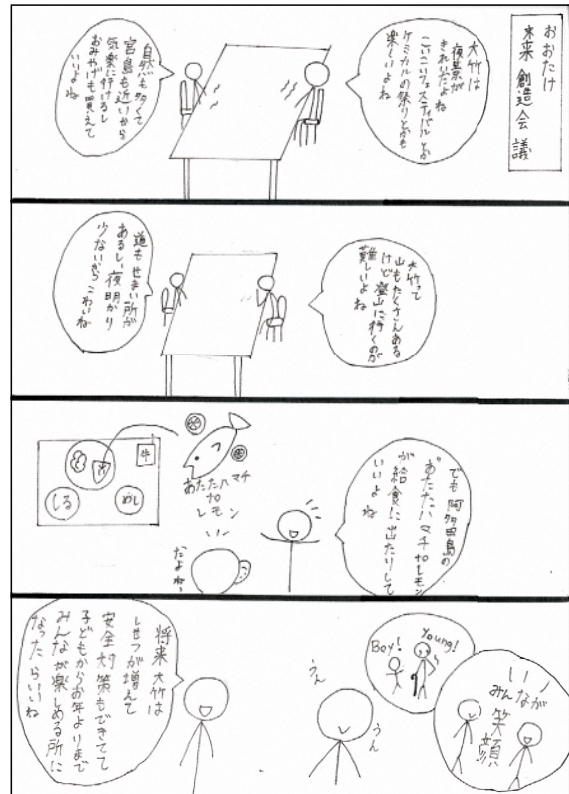 おおたけ
未来創造会議
大竹は
夜景が
きれいだよね
こいこいフェスティバルとか
ケミカルの祭りとかも
楽しいよね
自然も多くて
宮島も近いから
気楽に行けるし
おみやげも買えて
いいよね
大竹って
山もたくさんある
けど登山に行くのが
難しいよね
道もせまい所が
あるし、夜明かり
少ないからこわいね
でも阿多田島の
"あたたハマチtoレモン
が給食に出たりして
いいよね
あたたハマチ
to
レモン
牛
しる
めし
だよねっ
いい
みんなが
笑顔
Young!
Boy!
うん
うん
将来大竹は
しせつが増えて
安全対策もできてて
子どもからお年よりまで
みんなが楽しめる所に
なったらいいね